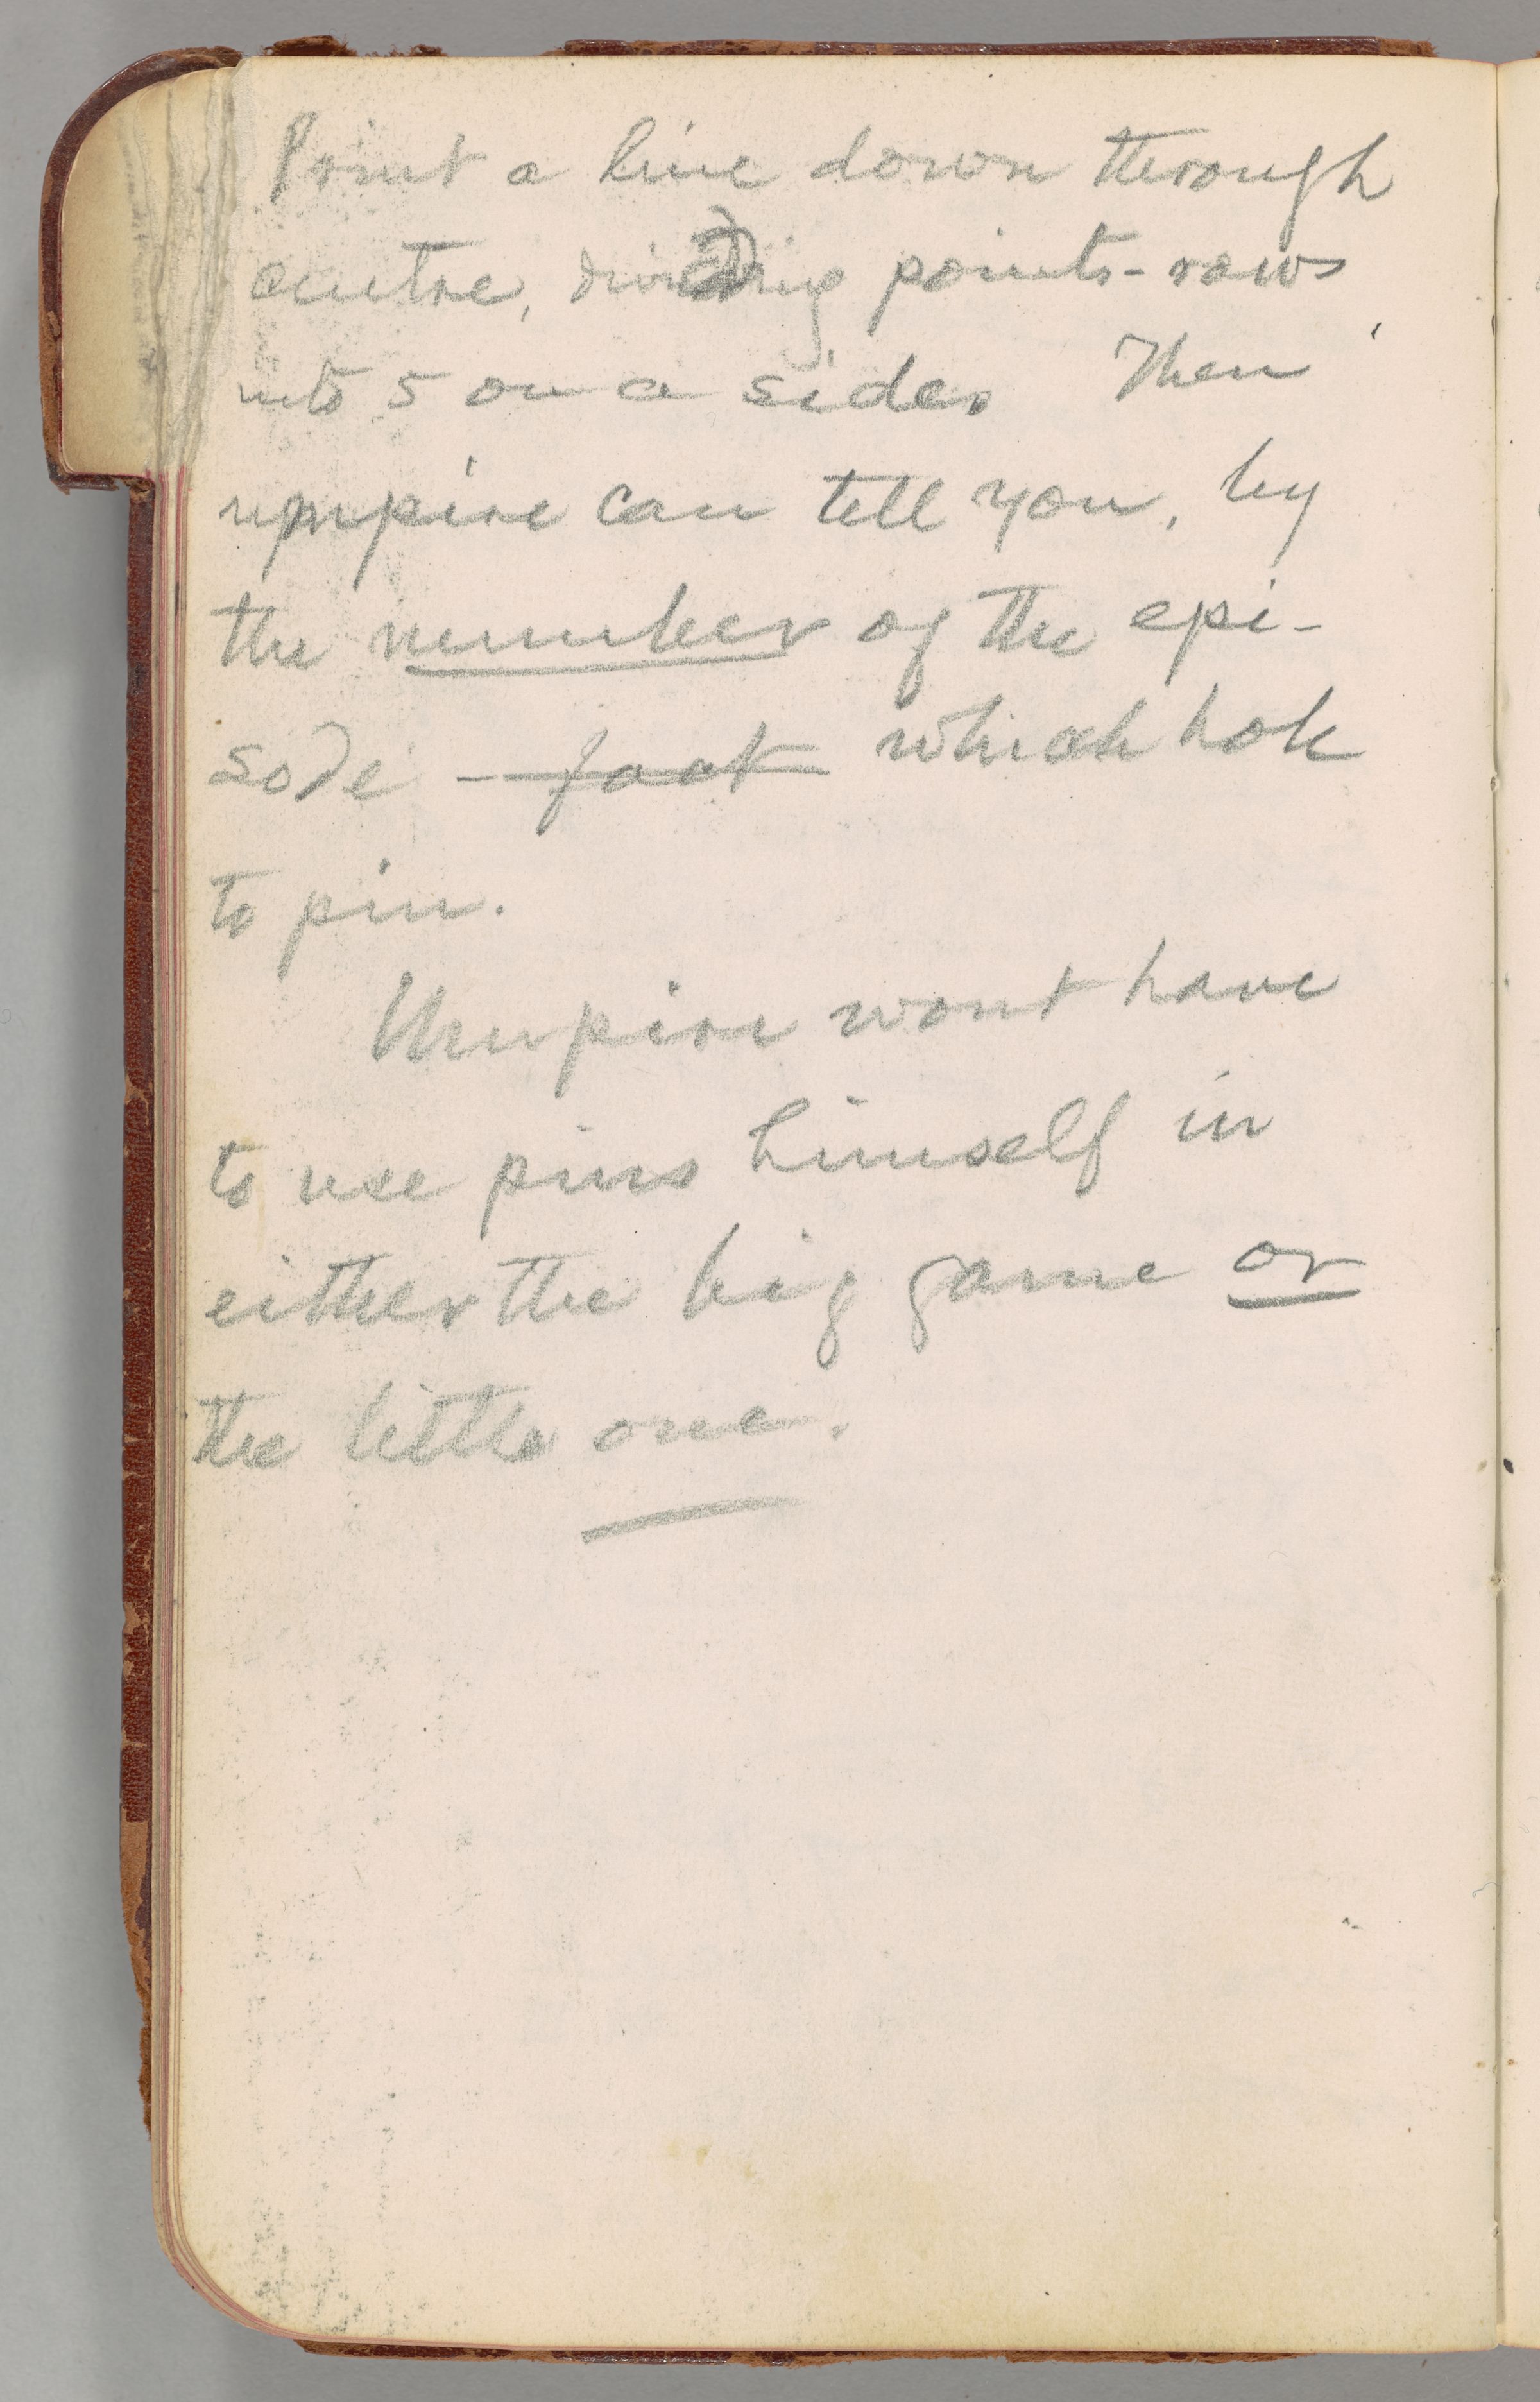 Print a line down through
centre, dividing points-rows
into 5 on a side. Then
umpire can tell you, by
the number of the epi-
sode — fact which hole
to pin.
Umpire wont have
to use pins himself in
either the big game or
the little one.